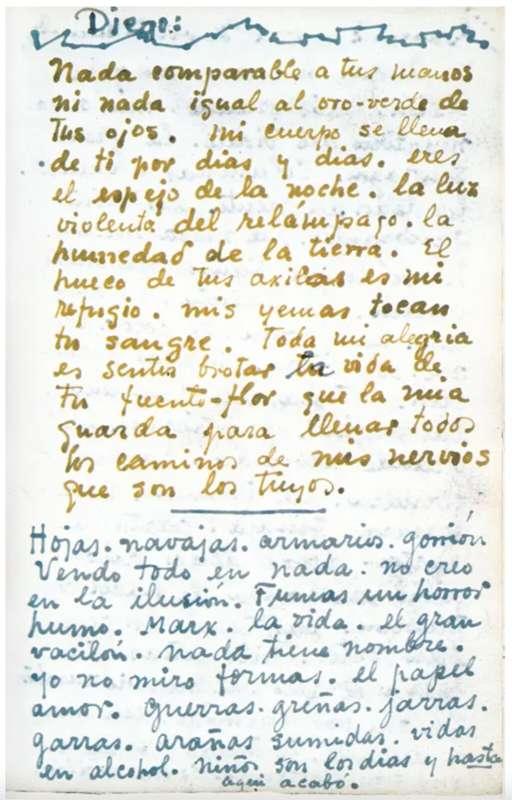 Diego:
Nada comparable a tus manos
ni nada igual al oro-verde de
tus ojos. mi cuerpo se llena
de ti por dias y dias. eres
el espejo de la noche. la luz
violenta del relámpago. la
humedad de la tierra. El
hueco de tus axilas es mi
refugio. mis yemas tocan
tu sangre. Toda mi alegria
es sentir brotar la vida de
tu fuente-flor que la mia
guarda para llenar todos
los caminos de mis nervios
que son los tuyos.
Hojas. navajas. armarios. gorrión
Vendo todo en nada. no creo
en la ilusión. Fumas un horror
humo. Marx. la vida. el gran
vacilón. nada tiene nombre.
yo no miro formas. el papel
amor. guerras. greñas. jarras.
garras. arañas sumidas. vidas
en alcohol. niños son los dias y hasta
aqui acabó.